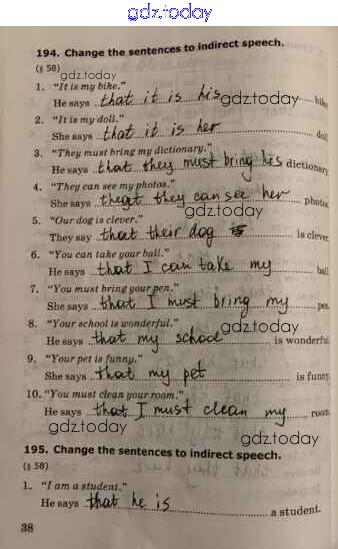 gdz.today
194. Change the sentences to indirect speech.
(§ 58) gdz.today
1. "It is my bike."
He says that it is his bike. gdz.today
2. "It is my doll."
She says that it is her doll.
3. "They must bring my dictionary."
He says that they must bring his dictionary.
4. "They can see my photos."
She says that they can see her photos.
gdz.today
5. "Our dog is clever."
They say that their dog is clever.
6. "You can take your ball."
He says that I can take my ball.
7. "You must bring your pen."
She says that I must bring my pen.
8. "Your school is wonderful." gdz.today
He says that my school is wonderful.
9. "Your pet is funny."
She says that my pet is funny.
10. "You must clean your room."
He says that I must clean my room.
gdz.today
195. Change the sentences to indirect speech.
(§ 58) gdz.today
1. "I am a student."
He says that he is a student.
38
gdz.today